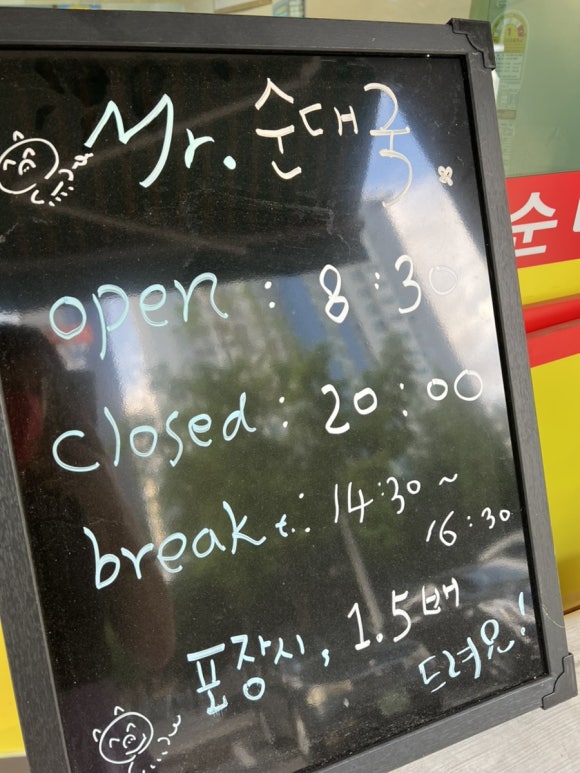 Mr. 순대국
open : 8:30
closed : 20:00
break t : 14:30 ~
16:30
포장시, 1.5배
드려요!
순